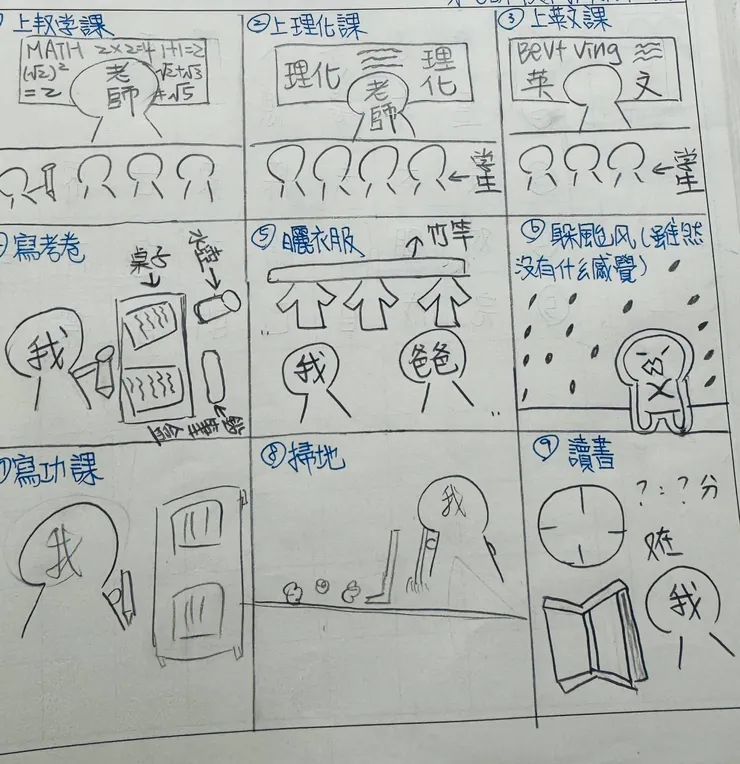 上数学課
MATH 2×2=4 1+1=2
(√2)²
=2
老師
√2+√3
≠√5
② 上理化課
理化
理化
老師
←學生
③ 上英文課
Bevt ving
英 文
←學生
寫考卷
桌子
我
⑤ 曬衣服
竹竿
我
爸爸
⑥ 躲颱风(雖然
没有什么感覺)
寫功課
我
⑧ 掃地
我
⑨ 讀書
?:?分
我